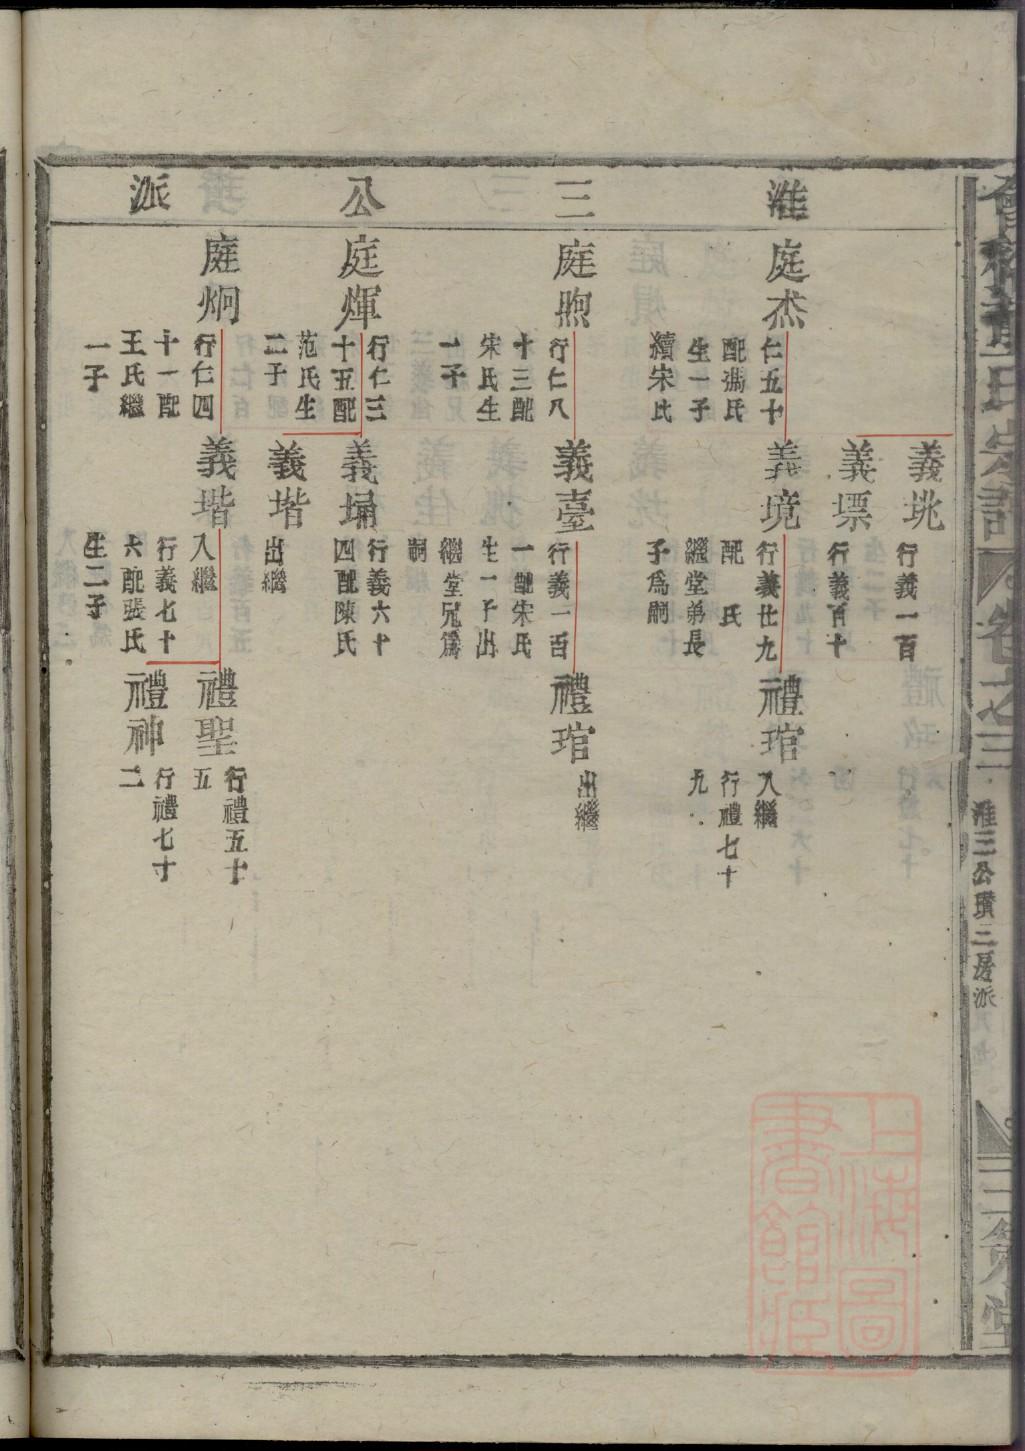 淮三公派
義垗
行義一百
義墂
行義百十
庭杰
仁五十
配馮氏
生一子
續宋氏
義境
行義廿九
配 氏
繼堂弟長
子爲嗣
禮琯
入繼
行禮七十
九
庭煦
行仁八
十三配
宋氏生
一子
義臺
行義一百
一配宋氏
生一子出
繼堂兄爲
嗣
禮琯
出繼
庭煇
行仁三
十五配
范氏生
二子
義埇
行義六十
四配陳氏
義堦
出繼
庭炯
行仁四
十一配
王氏繼
一子
義堦
入繼
行義七十
六配張氏
生二子
禮聖
行禮五十
五
禮神
行禮七十
二
卷之三
淮三公瓚二房派
上海圖書館藏